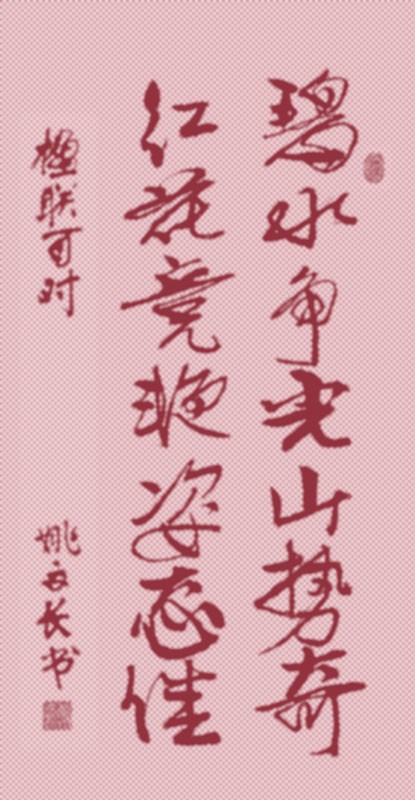 碧水争光山势奇
红花竞艳姿态佳
楹联可对
姚文长书